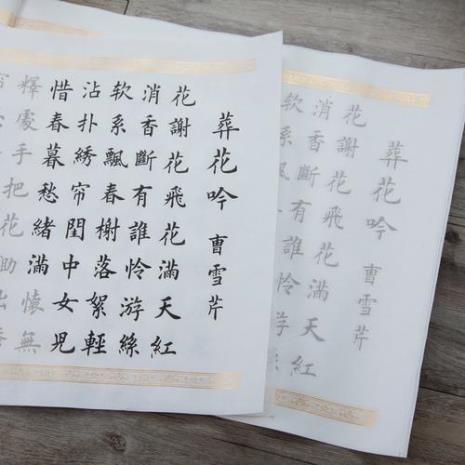 葬花吟 曹雪芹
花謝花飛花滿天紅
消香斷有誰憐游絲
软系飄春榭落絮輕
沾扑綉帘閨中女児
惜春暮愁緒滿懷無
釋處手把花鋤出香
葬花吟 曹雪芹
花謝花飛花滿天紅
消香斷有誰憐游絲
软系飄